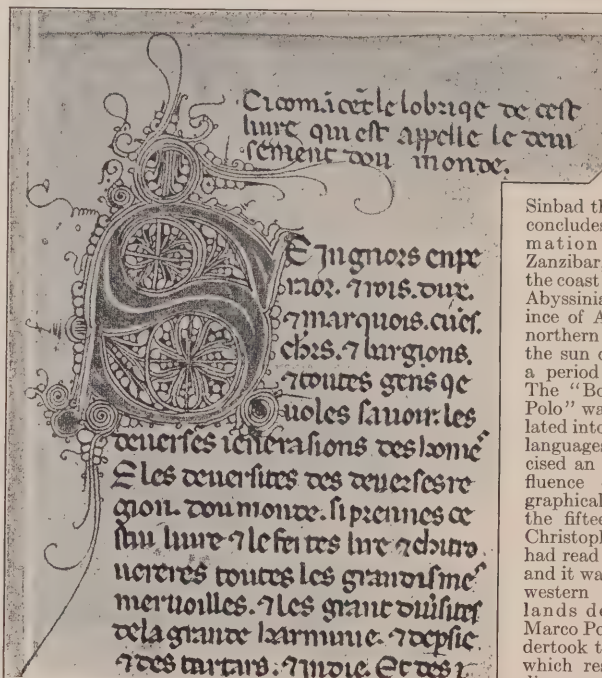 Ci comācet le lobriqe de cest
liure qui est appelle le deui
sement dou monde.
SEingnors enpe
raor. ⁊ rois. dux.
⁊ marquois. cues.
chrs. ⁊ burgions.
⁊ toutes gens qe
uoles sauoir les
deuerses ienerasions des home͂
E les deuersites des deuerses re
gion. dou monde. si prennes ce
stui liure ⁊ le feites lire ⁊ chi tro
uereres toutes les grandismes
meruoilles. ⁊ les grant diuisites
de la grande harminie. ⁊ depsie.
⁊ des tartars. ⁊ indie. Et des
Sinbad th
concludes
mation
Zanzibar
the coast
Abyssinia
ince of A
northern
the sun
a period
The "Bo
Polo" wa
lated into
languages
cised an
fluence
graphical
the fiftee
Christoph
had read
and it wa
western
lands de
Marco Po
dertook t
which res